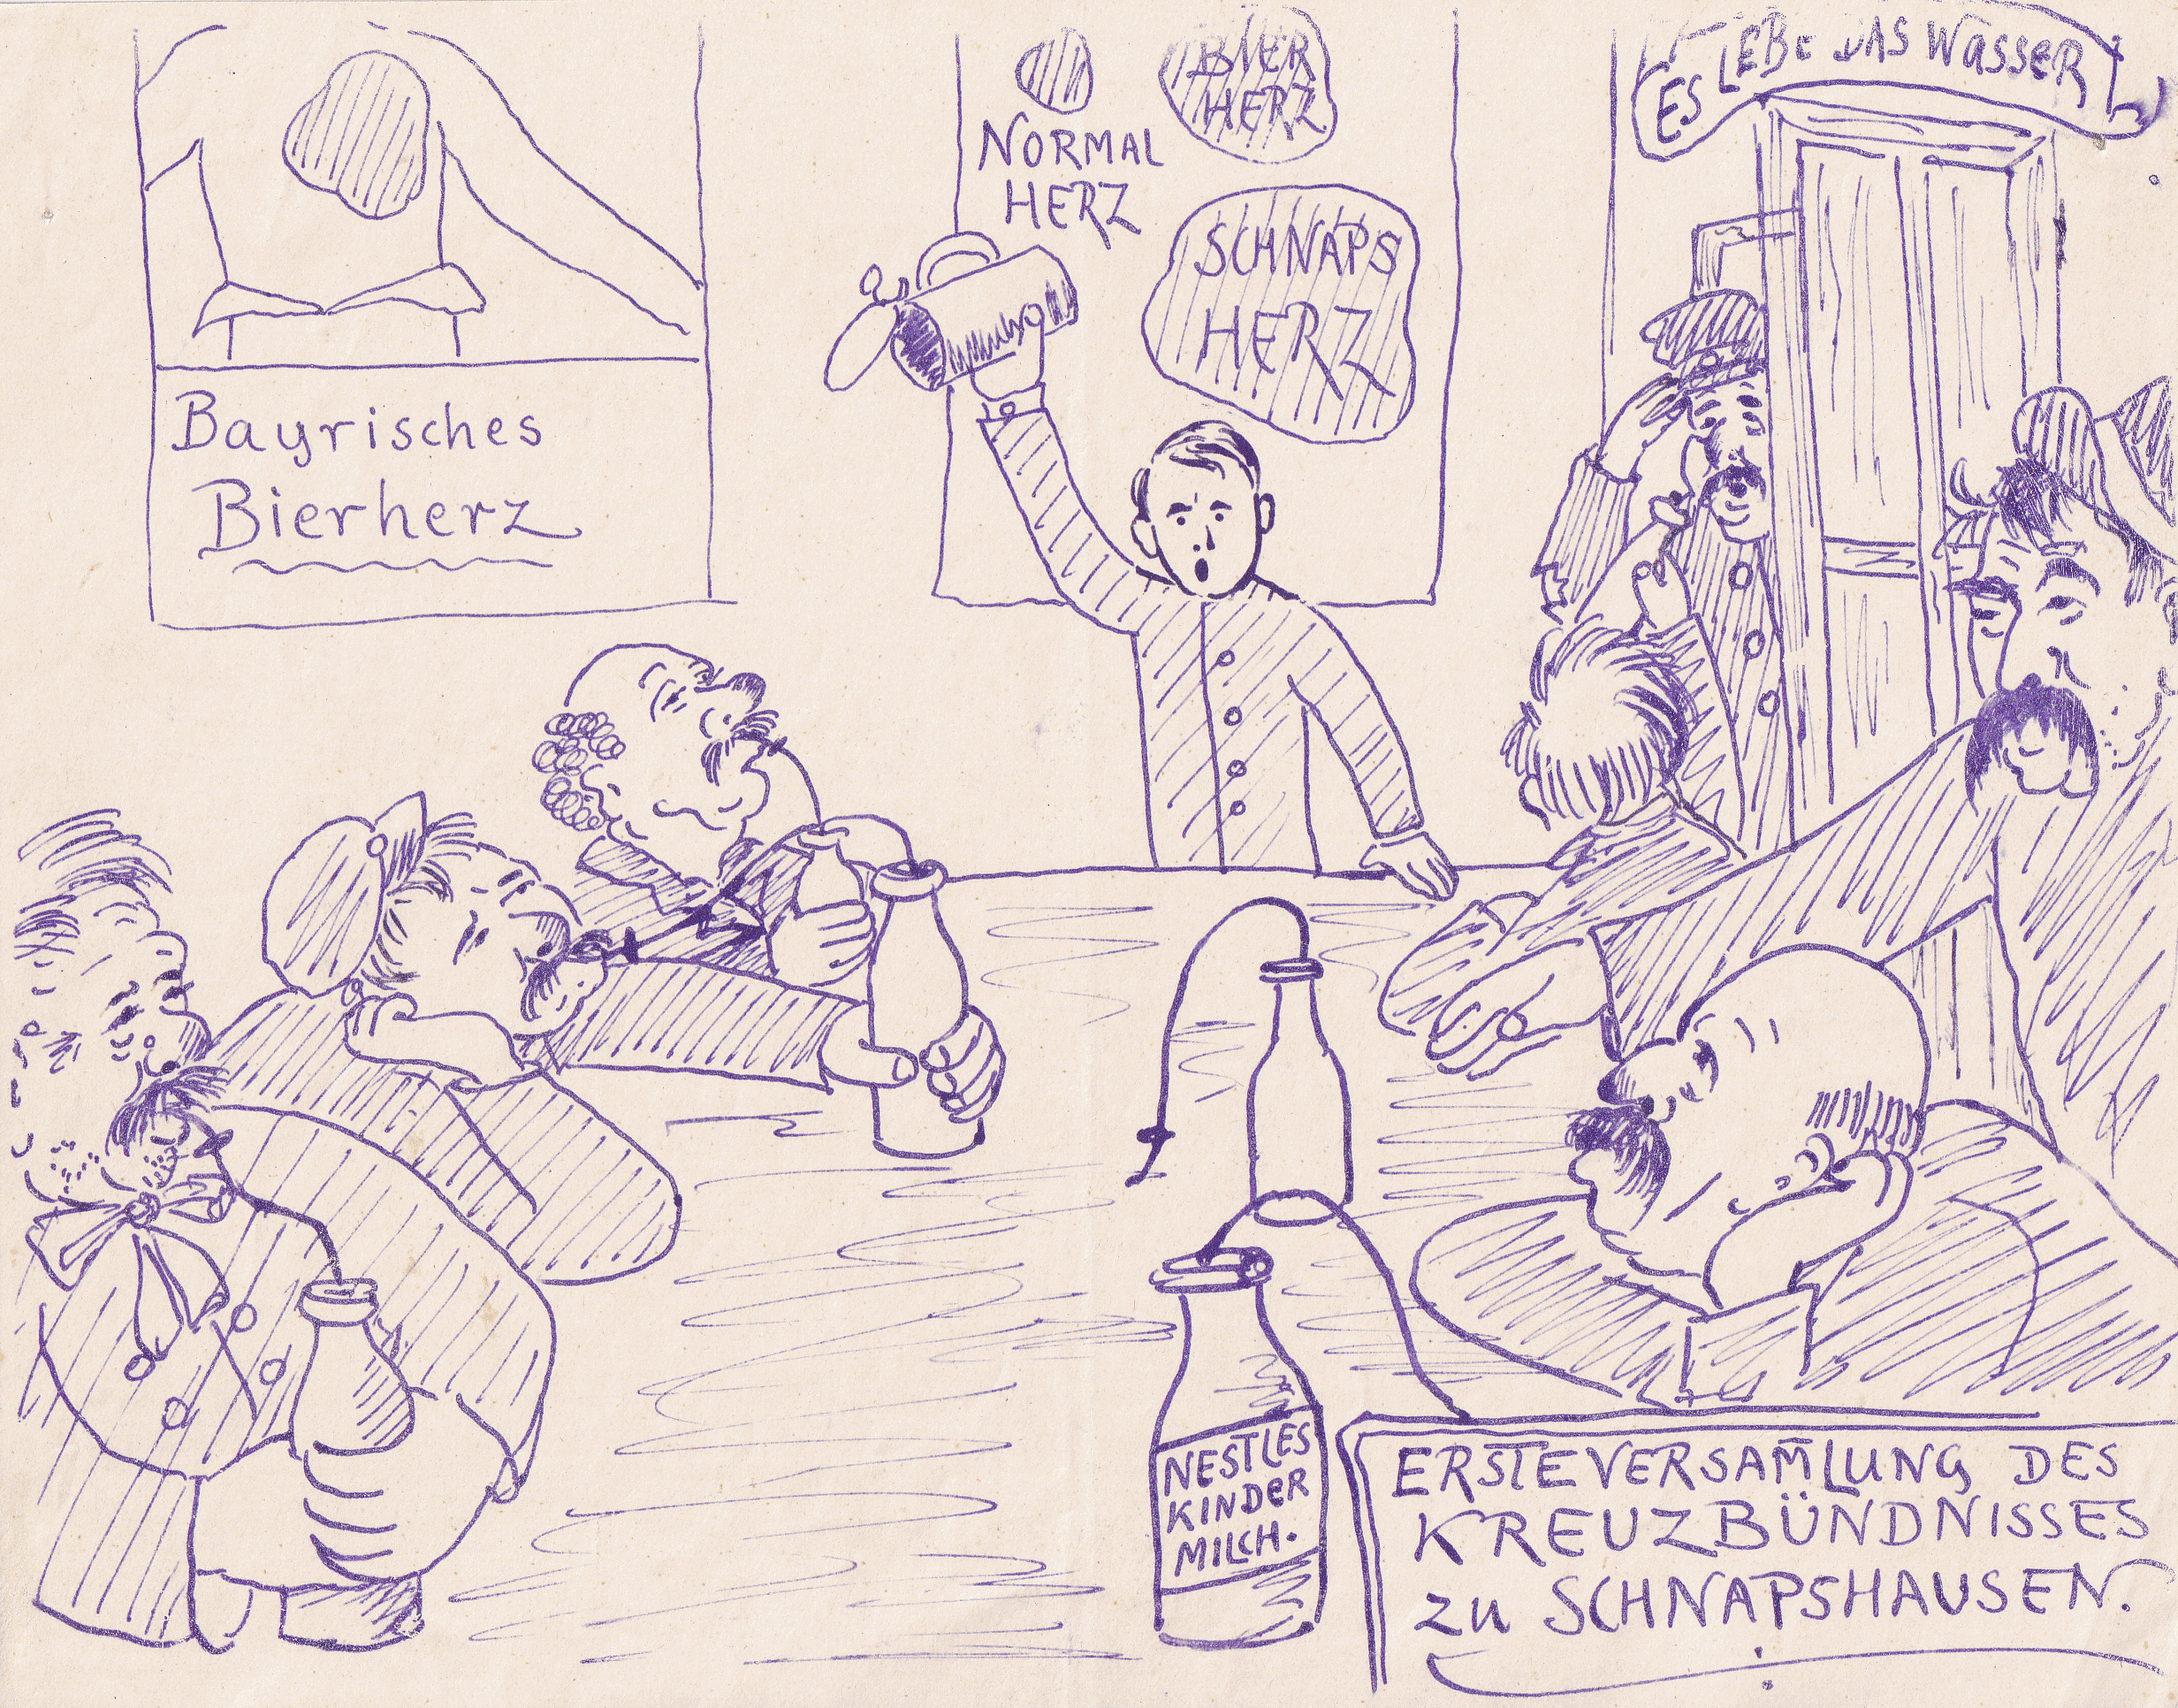 Bayrisches
Bierherz
NORMAL
HERZ
BIER
HERZ
SCHNAPS
HERZ
ES LEBE DAS WASSER
NESTLES
KINDER
MILCH.
ERSTE VERSAM̄LUNG DES
KREUZBÜNDNISSES
zu SCHNAPSHAUSEN.